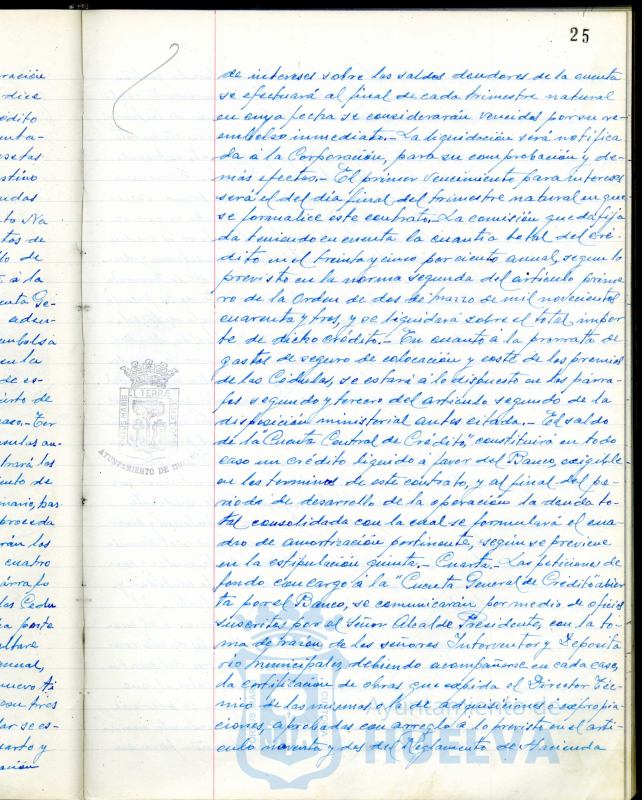 25
de intereses sobre los saldos deudores de la cuenta
se efectuará al final de cada trimestre natural
en cuya fecha se considerarán vencidos por su re-
embolso inmediato.- La liquidación será notifica
da á la Corporación, para su comprobación y de-
más efectos.- El primer vencimiento para intereses
será el del día final del trimestre natural en que
se formalice este contrato. La comisión queda fija
da teniendo en cuenta la cuantía total del cré-
dito en el treinta y cinco por ciento anual, según lo
previsto en la norma segunda del artículo prime
ro de la Orden de dos de marzo de mil novecientos
cuarenta y tres, y se liquidará sobre el total impor
te de dicho crédito.- En cuanto á la prorrata de
gastos de seguro de colocación y coste de los premios
de las Cédulas, se estará á lo dispuesto en los párra-
fos segundo y tercero del artículo segundo de la
disposición ministerial antes citada.- El saldo
de la "Cuenta Central de Crédito", constituirá en todo
caso un crédito líquido á favor del Banco, exigible
en los terminos de este contrato, y al final del pe-
riodo de desarrollo de la operación la deuda to-
tal consolidada con la cual se formulará el cua
dro de amortización pertinente, según se previene
en la estipulación quinta.- Cuarta.- Las peticiones de
fondo con cargo á la "Cuenta General de Crédito" abier
ta por el Banco, se comunicarán por medio de oficios
suscritos por el Señor Alcalde Presidente, con la to-
ma de razon de los señores Interventor y Deposita
rio municipales, debiendo acompañarse en cada caso,
la certificación de obras que expida el Director Téc-
nico de las mismas, o la de adquisiciones o expropia-
ciones, aprobadas con arreglo a lo previsto en el artí-
culo noventa y dos del Reglamento de Hacienda
PORTUS MARIS ET TERRAE CUSTODIA
AYUNTAMIENTO DE HUELVA
Ayuntamiento de
HUELVA
ración
dice
édito
setas
stino
to Na
tos de
lo de
á la
embolsa
en la
de es-
caso.- Ter
trará los
proceda
rán los
cuatro
árrafo
las Cedu
a parte
anual,
nuevo ti
sus tres
uarto y
ación